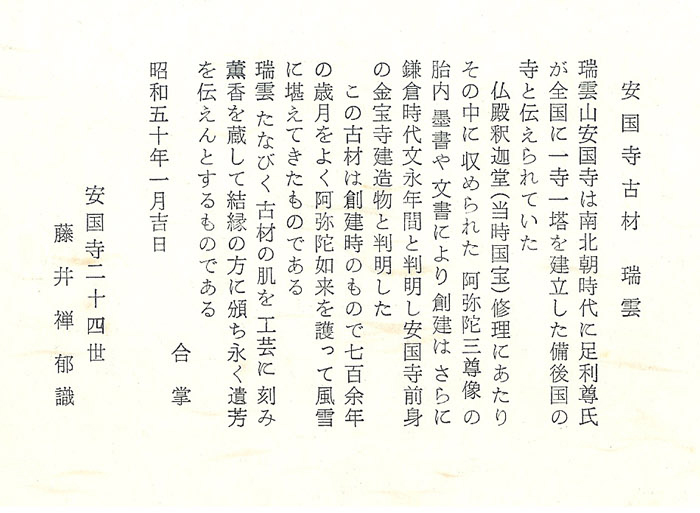 安国寺古材　瑞雲
瑞雲山安国寺は南北朝時代に足利尊氏
が全国に一寺一塔を建立した備後国の
寺と伝えられていた
仏殿釈迦堂(当時国宝)修理にあたり
その中に収められた 阿弥陀三尊像の
胎内 墨書や文書により創建は さらに
鎌倉時代文永年間と判明し安国寺前身
の金宝寺建造物と判明した
この古材は創建時のもので七百余年
の歳月をよく阿弥陀如来を護って風雪
に堪えてきたものである
瑞雲 たなびく古材の肌を 工芸に 刻み
薫香を蔵して結縁の方に頒ち永く遺芳
を伝えんとするものである
合掌
昭和五十年一月吉日
安国寺二十四世
藤井禅郁識